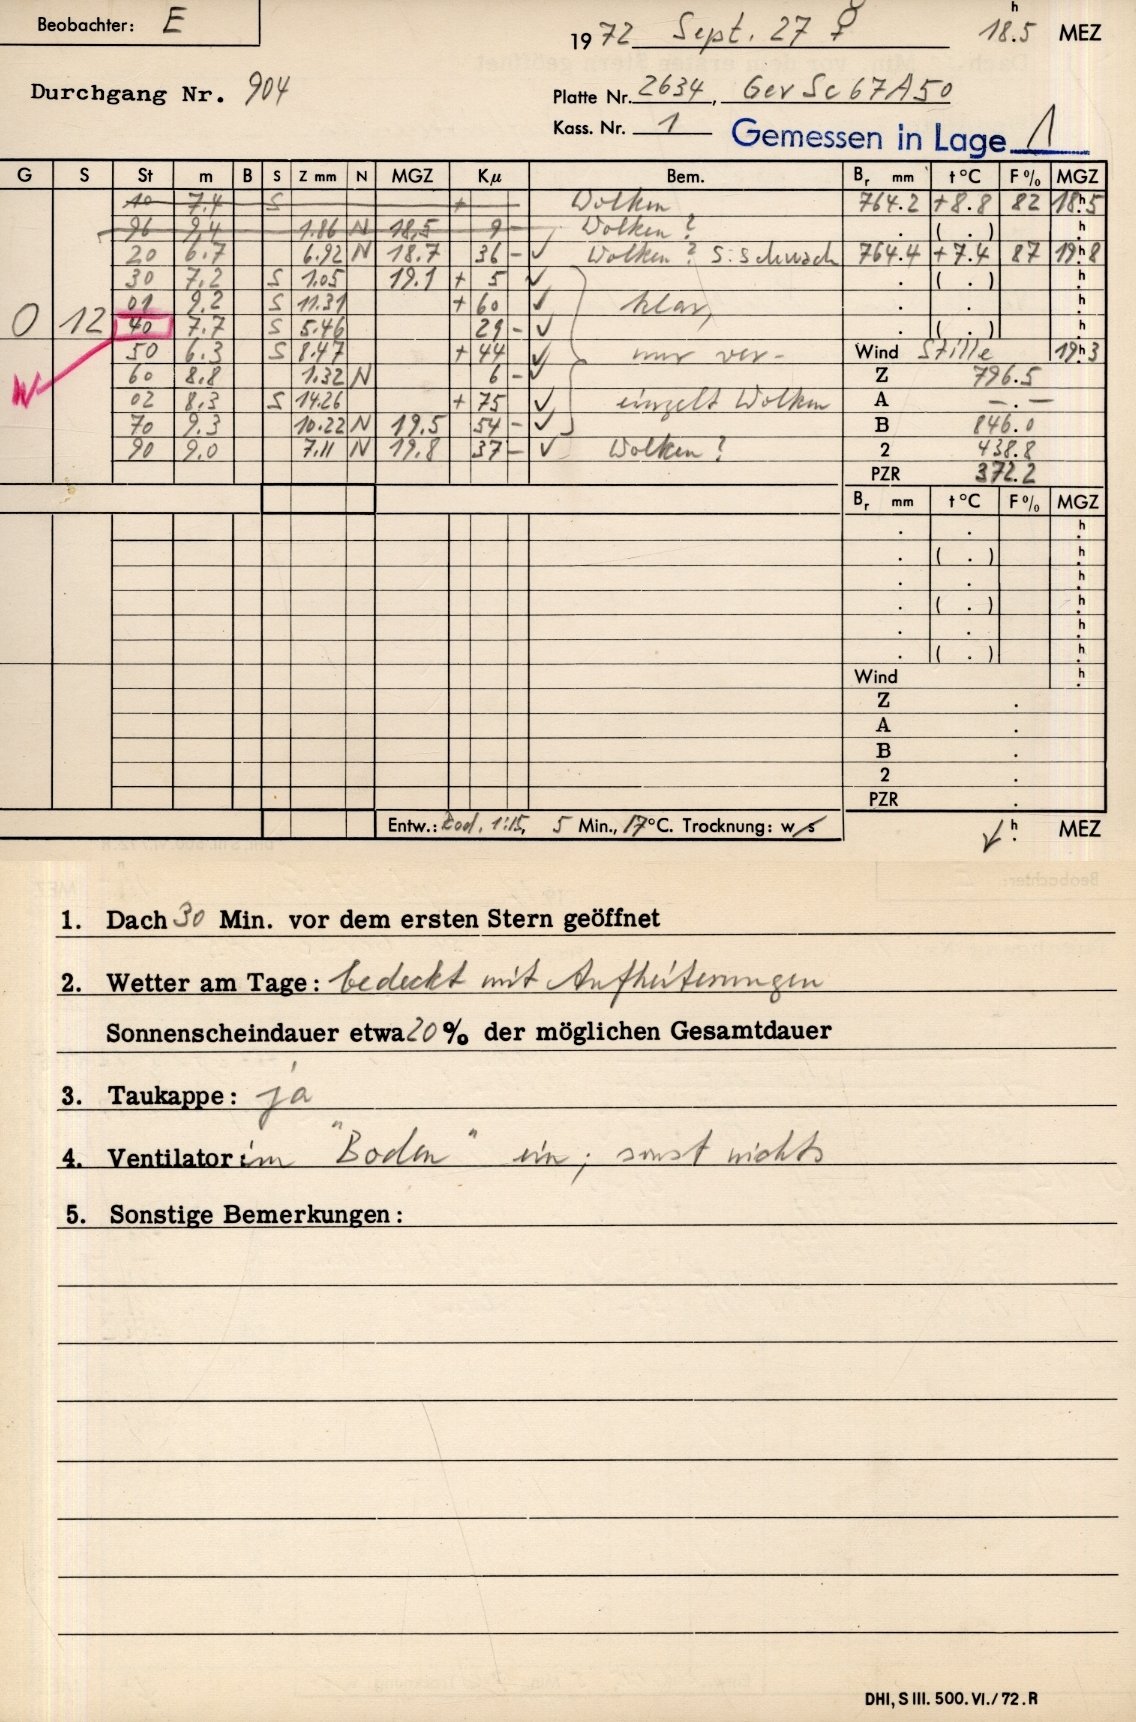 Beobachter: E
1972 Sept. 27 ☿ 18.5 h MEZ
Durchgang Nr. 904
Platte Nr. 2634, Gev Sc 67A50
Kass. Nr. 1
Gemessen in Lage 1
G S St m B S Z mm N MGZ Kμ Bem. Br mm t °C F % MGZ
10 7.4 S + Wolken 764.2 +8.8 82 18h5
96 9.4 1.86 N 18.5 9 - Wolken? . ( . ) h.
20 6.7 6.92 N 18.7 36 - ✓ Wolken? S: schwach 764.4 +7.4 87 19h8
30 7.2 S 1.05 19.1 + 5 ✓ . ( . ) h.
01 9.2 S 11.31 + 60 ✓ klar, . . h.
0 12 40 7.7 S 5.46 29 - ✓ . ( . ) h.
50 6.3 S 8.47 + 44 ✓ nur ver- Wind Stille 19h3
W 60 8.8 1.32 N 6 - ✓ Z 796.5
02 8.3 S 14.26 + 75 ✓ einzelt Wolken A - . -
70 9.3 10.22 N 19.5 54 - ✓ B 846.0
90 9.0 7.11 N 19.8 37 - ✓ Wolken? 2 438.8
PZR 372.2
Br mm t °C F % MGZ
. . h.
. ( . ) h.
. . h.
. ( . ) h.
. . h.
. ( . ) h.
Wind h.
Z .
A .
B .
2 .
PZR .
Entw.: Rod. 1:15, 5 Min., 17°C. Trocknung: w/s ✓ h. MEZ
1. Dach 30 Min. vor dem ersten Stern geöffnet
2. Wetter am Tage: bedeckt mit Aufheiterungen
Sonnenscheindauer etwa 20% der möglichen Gesamtdauer
3. Taukappe: ja
4. Ventilator: im "Boden" ein; sonst nichts
5. Sonstige Bemerkungen:
DHI, S III. 500. VI./72. R